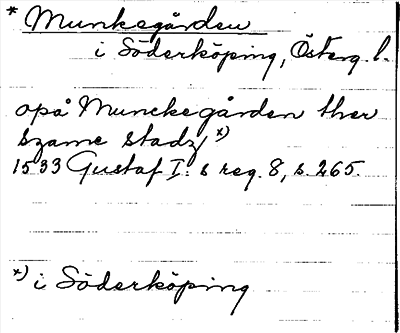 * Munkegården
i Söderköping, Österg. l.
opå Munckegården ther
szame stadz x)
1533 Gustaf I:s reg. 8, s. 265.
x) i Söderköping